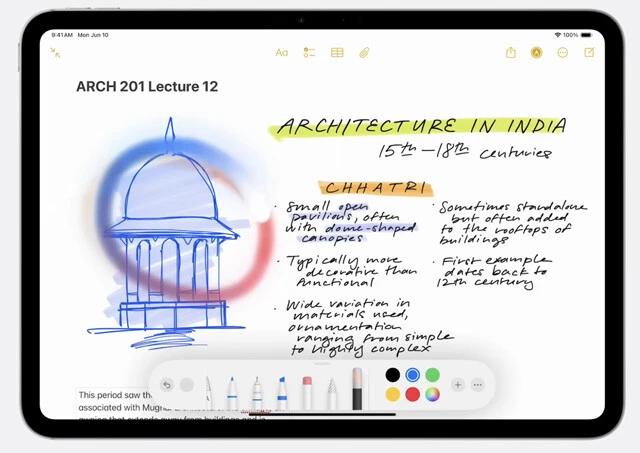 9:41AM Mon Jun 10
100%
Aa
ARCH 201 Lecture 12
ARCHITECTURE IN INDIA
15th – 18th centuries
CHHATRI
· Small open
pavilions, often
with dome-shaped
canopies
· Typically more
decorative than
functional
· Wide variation in
materials used,
ornamentation
ranging from simple
to highly complex
· Sometimes standalone
but often added
to the rooftops of
buildings
· First example
dates back to
12th century
This period saw
associated with